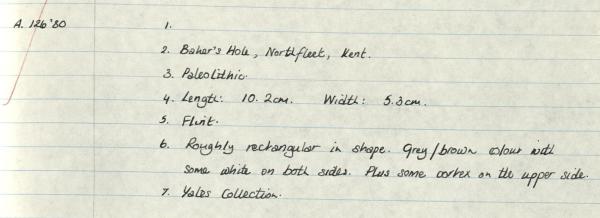 A. 126'80 1.
2. Baker's Hole, Northfleet, Kent.
3. Paleolithic.
4. Length: 10.2cm. Width: 5.3cm.
5. Flint.
6. Roughly rectangular in shape. Grey/brown colour with
some white on both sides. Plus some cortex on the upper side.
7. Yates Collection.